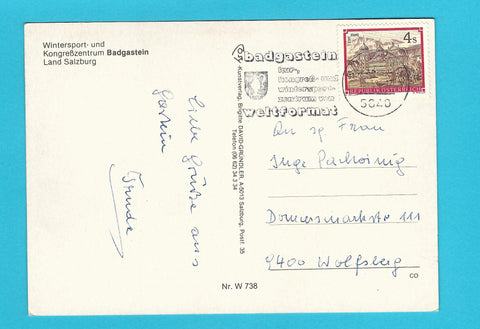 Wintersport- und
Kongreßzentrum Badgastein
Land Salzburg
Liebe Grüße aus
Gastein
Trude
Kunstverlag Brigitte DAVID-GRÜNDLER, A-5013 Salzburg, Postf. 35
Telefon (06 62) 34 3 34
badgastein
kur-,
kongreß- und
wintersport-
zentrum von
weltformat
5640
4s
REPUBLIK ÖSTERREICH
An sg Frau
Inge
111
9400 Wolfsberg
Nr. W 738
CO